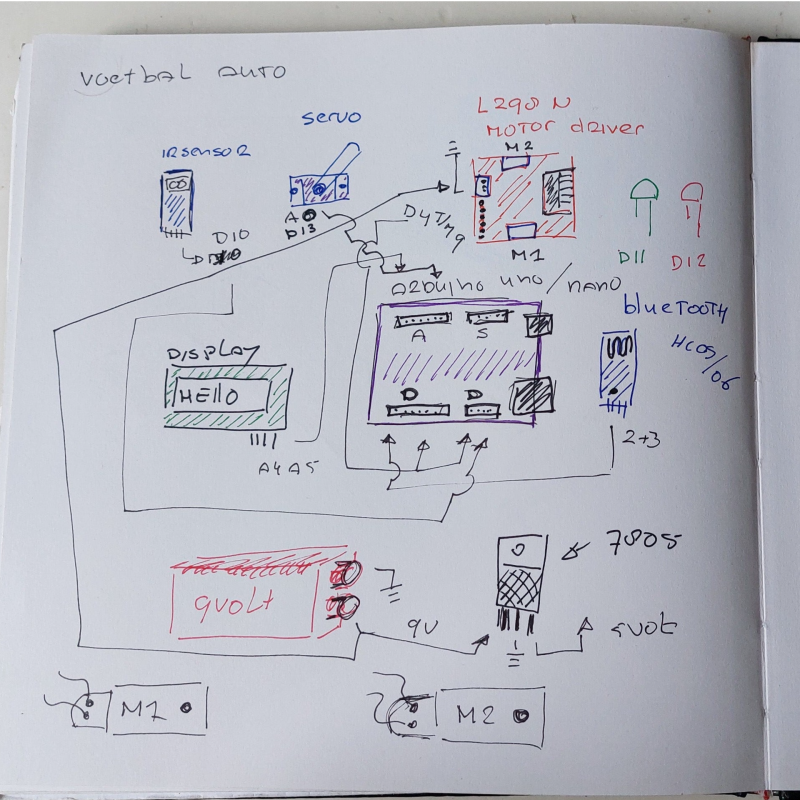 voetbal auto
L298N
MOTOR driver
servo
IR sensor
M2
A
D13
D10
D4T/M9
M1
D11
D12
Arduino uno/nano
bluetooth
HC05/06
A
S
DISPLAY
HELLO
D
D
2+3
A4 A5
7805
9volt
9V
5volt
M1
M2